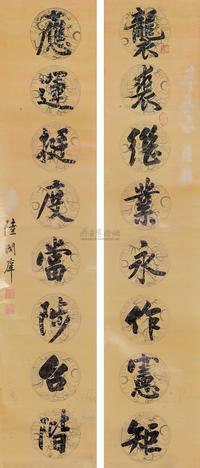 襲裘繼業永作憲矩
應運挺度當陟台階
陸潤庠